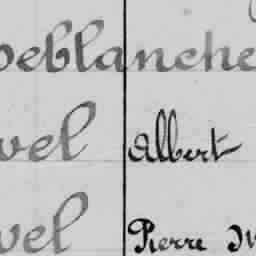 eblanche
vel Albert
vel Pierre